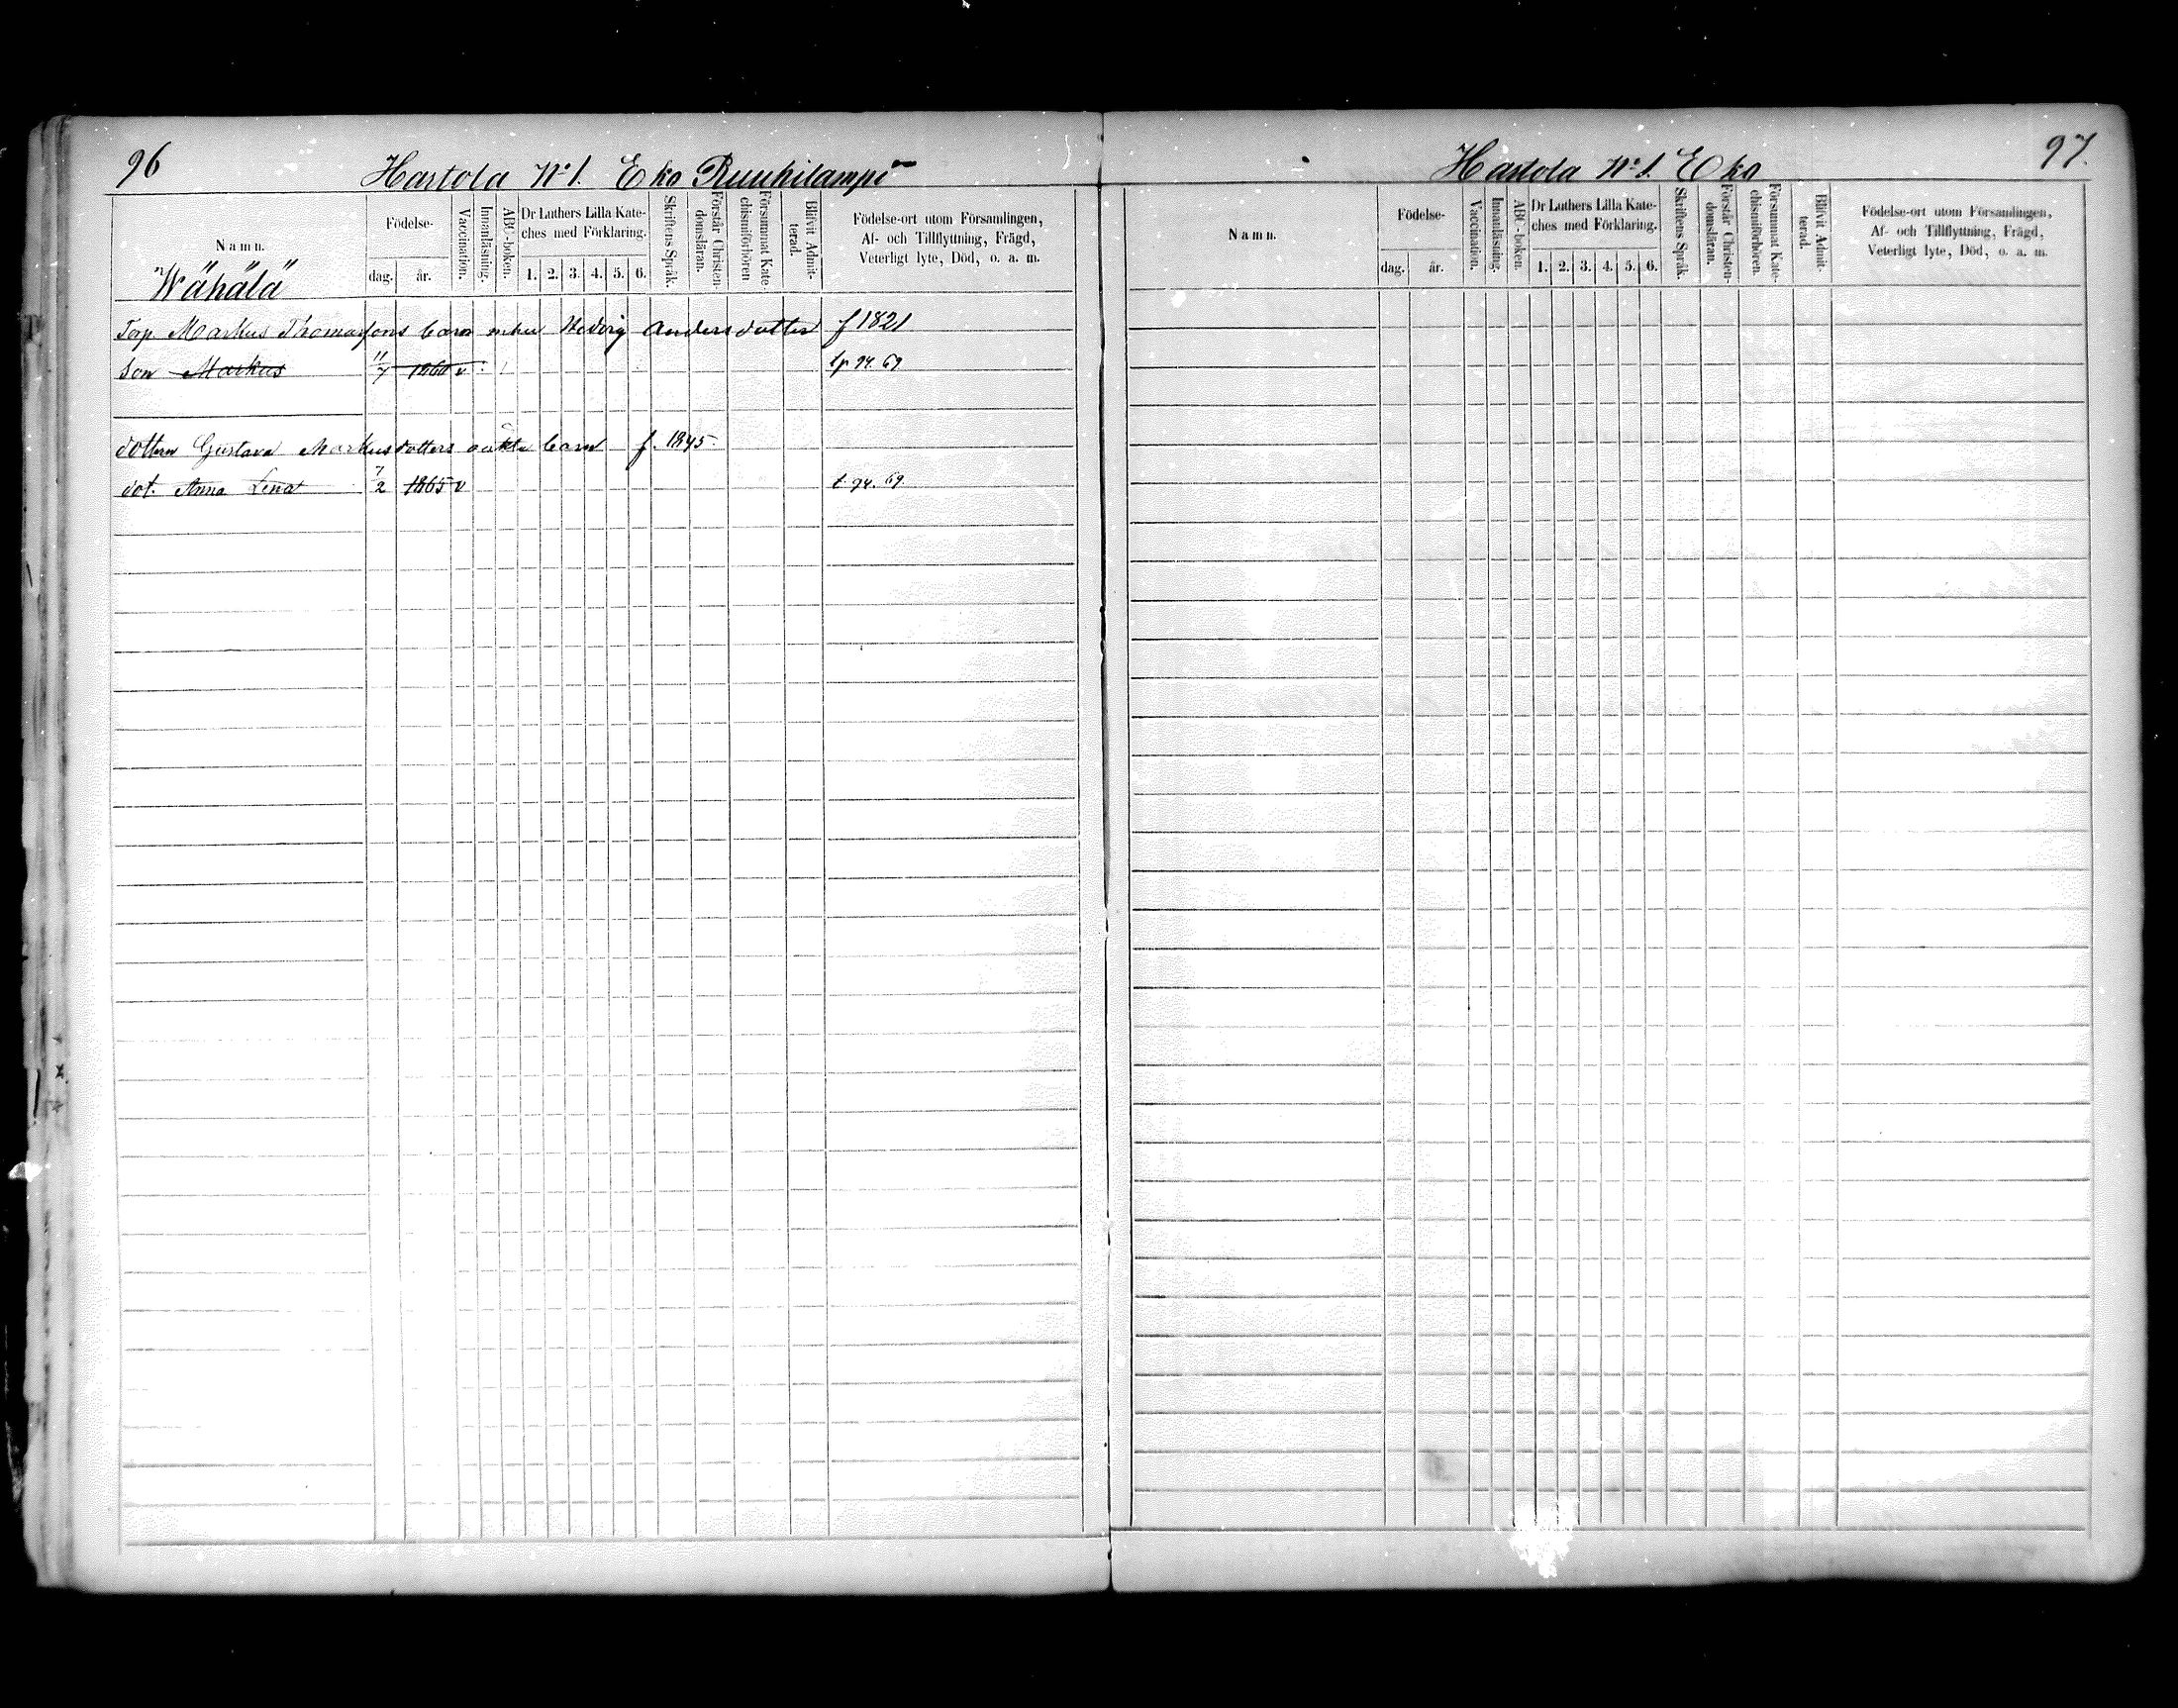 96
Hartola No 1. Eko Ruuhilampi
Namn.
Födelse-
dag.
år.
Vaccination.
Innanläsning.
ABC-boken.
Dr Luthers Lilla Kate-
ches med Förklaring.
1. 2. 3. 4. 5. 6.
Skriftens Språk.
Förstår Christen-
domsläran.
Försummat Kate-
chismiförhören
Blifvit Admit-
terad.
Födelse-ort utom Församlingen,
Af- och Tillflyttning, Frägd,
Veterligt lyte, Död, o. a. m.
Wähälä
Torp. Markus Thomassons barn m hu Hedvig Andersdotter f 1821
Son Markus 11/7 1860 v tp 94. 69
dottern Gustava Markusdotters oäkta barn f. 1845
dot. Anna Lena 7/2 1865 v t. 94. 69.
97.
Hartola No 1. Eko
Namn.
Födelse-
dag.
år.
Vaccination.
Innanläsning.
ABC-boken.
Dr Luthers Lilla Kate-
ches med Förklaring.
1. 2. 3. 4. 5. 6.
Skriftens Språk.
Förstår Christen-
domsläran.
Försummat Kate-
chismiförhören.
Blifvit Admit-
terad.
Födelse-ort utom Församlingen,
Af- och Tillflyttning, Frägd,
Veterligt lyte, Död, o. a. m.